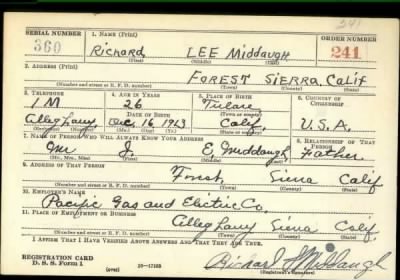 241
SERIAL NUMBER 1. NAME (Print) ORDER NUMBER
360 Richard LEE Middaugh 241
(First) (Middle) (Last)
2. ADDRESS (Print)
FOREST SIERRA, Calif
(Number and street or R. F. D. number) (Town) (County) (State)
3. TELEPHONE 4. AGE IN YEARS 5. PLACE OF BIRTH 6. COUNTRY OF CITIZENSHIP
1 M 26 Tulare
DATE OF BIRTH
Alleghany Dec 16, 1913 Calif. U.S.A.
(Exchange) (Number) (Mo.) (Day) (Yr.) (State or country)
7. NAME OF PERSON WHO WILL ALWAYS KNOW YOUR ADDRESS 8. RELATIONSHIP OF THAT PERSON
Mr J E Middaugh Father
(Mr., Mrs., Miss) (First) (Middle) (Last)
9. ADDRESS OF THAT PERSON
Forest, Sierra Calif
(Number and street or R. F. D. number) (Town) (County) (State)
10. EMPLOYER'S NAME
Pacific Gas and Electric Co.
11. PLACE OF EMPLOYMENT OR BUSINESS
Alleghany Sierra Calif.
(Number and street or R. F. D. number) (Town) (County) (State)
I AFFIRM THAT I HAVE VERIFIED ABOVE ANSWERS AND THAT THEY ARE TRUE.
REGISTRATION CARD
D. S. S. Form 1 (over) 16-17105 Richard L Middaugh
(Registrant's signature)